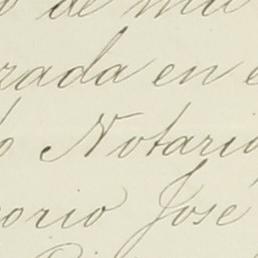 o de mil
rada en e
o Notario
orio José